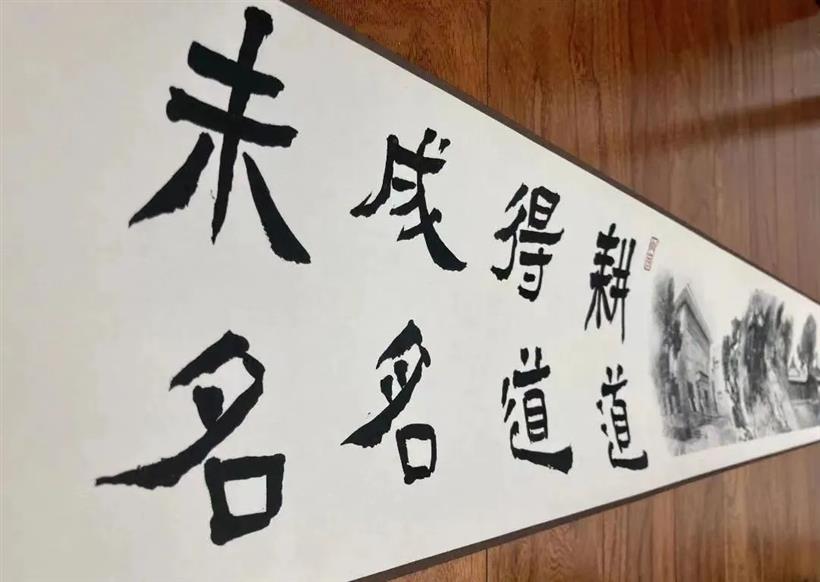 耕道
得道
成名
未名